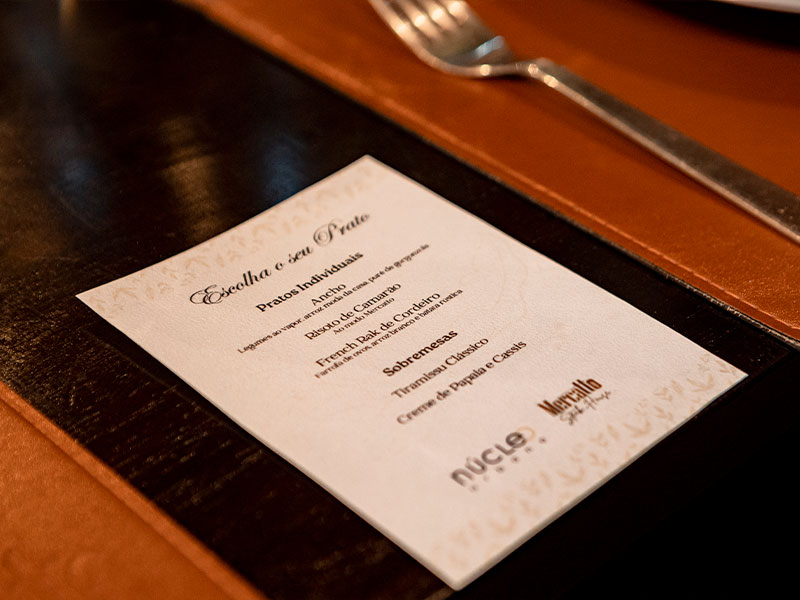 Escolha o seu Prato
Pratos Individuais
Ancho
Legumes ao vapor, arroz moda da casa, purê de gorgonzola
Risoto de Camarão
Ao modo Mercatto
French Rak de Cordeiro
Farrofa de ovos, arroz branco e batata rústica
Sobremesas
Tiramissu Clássico
Creme de Papaia e Cassis
NÚCLEO
Mercatto
Steak House